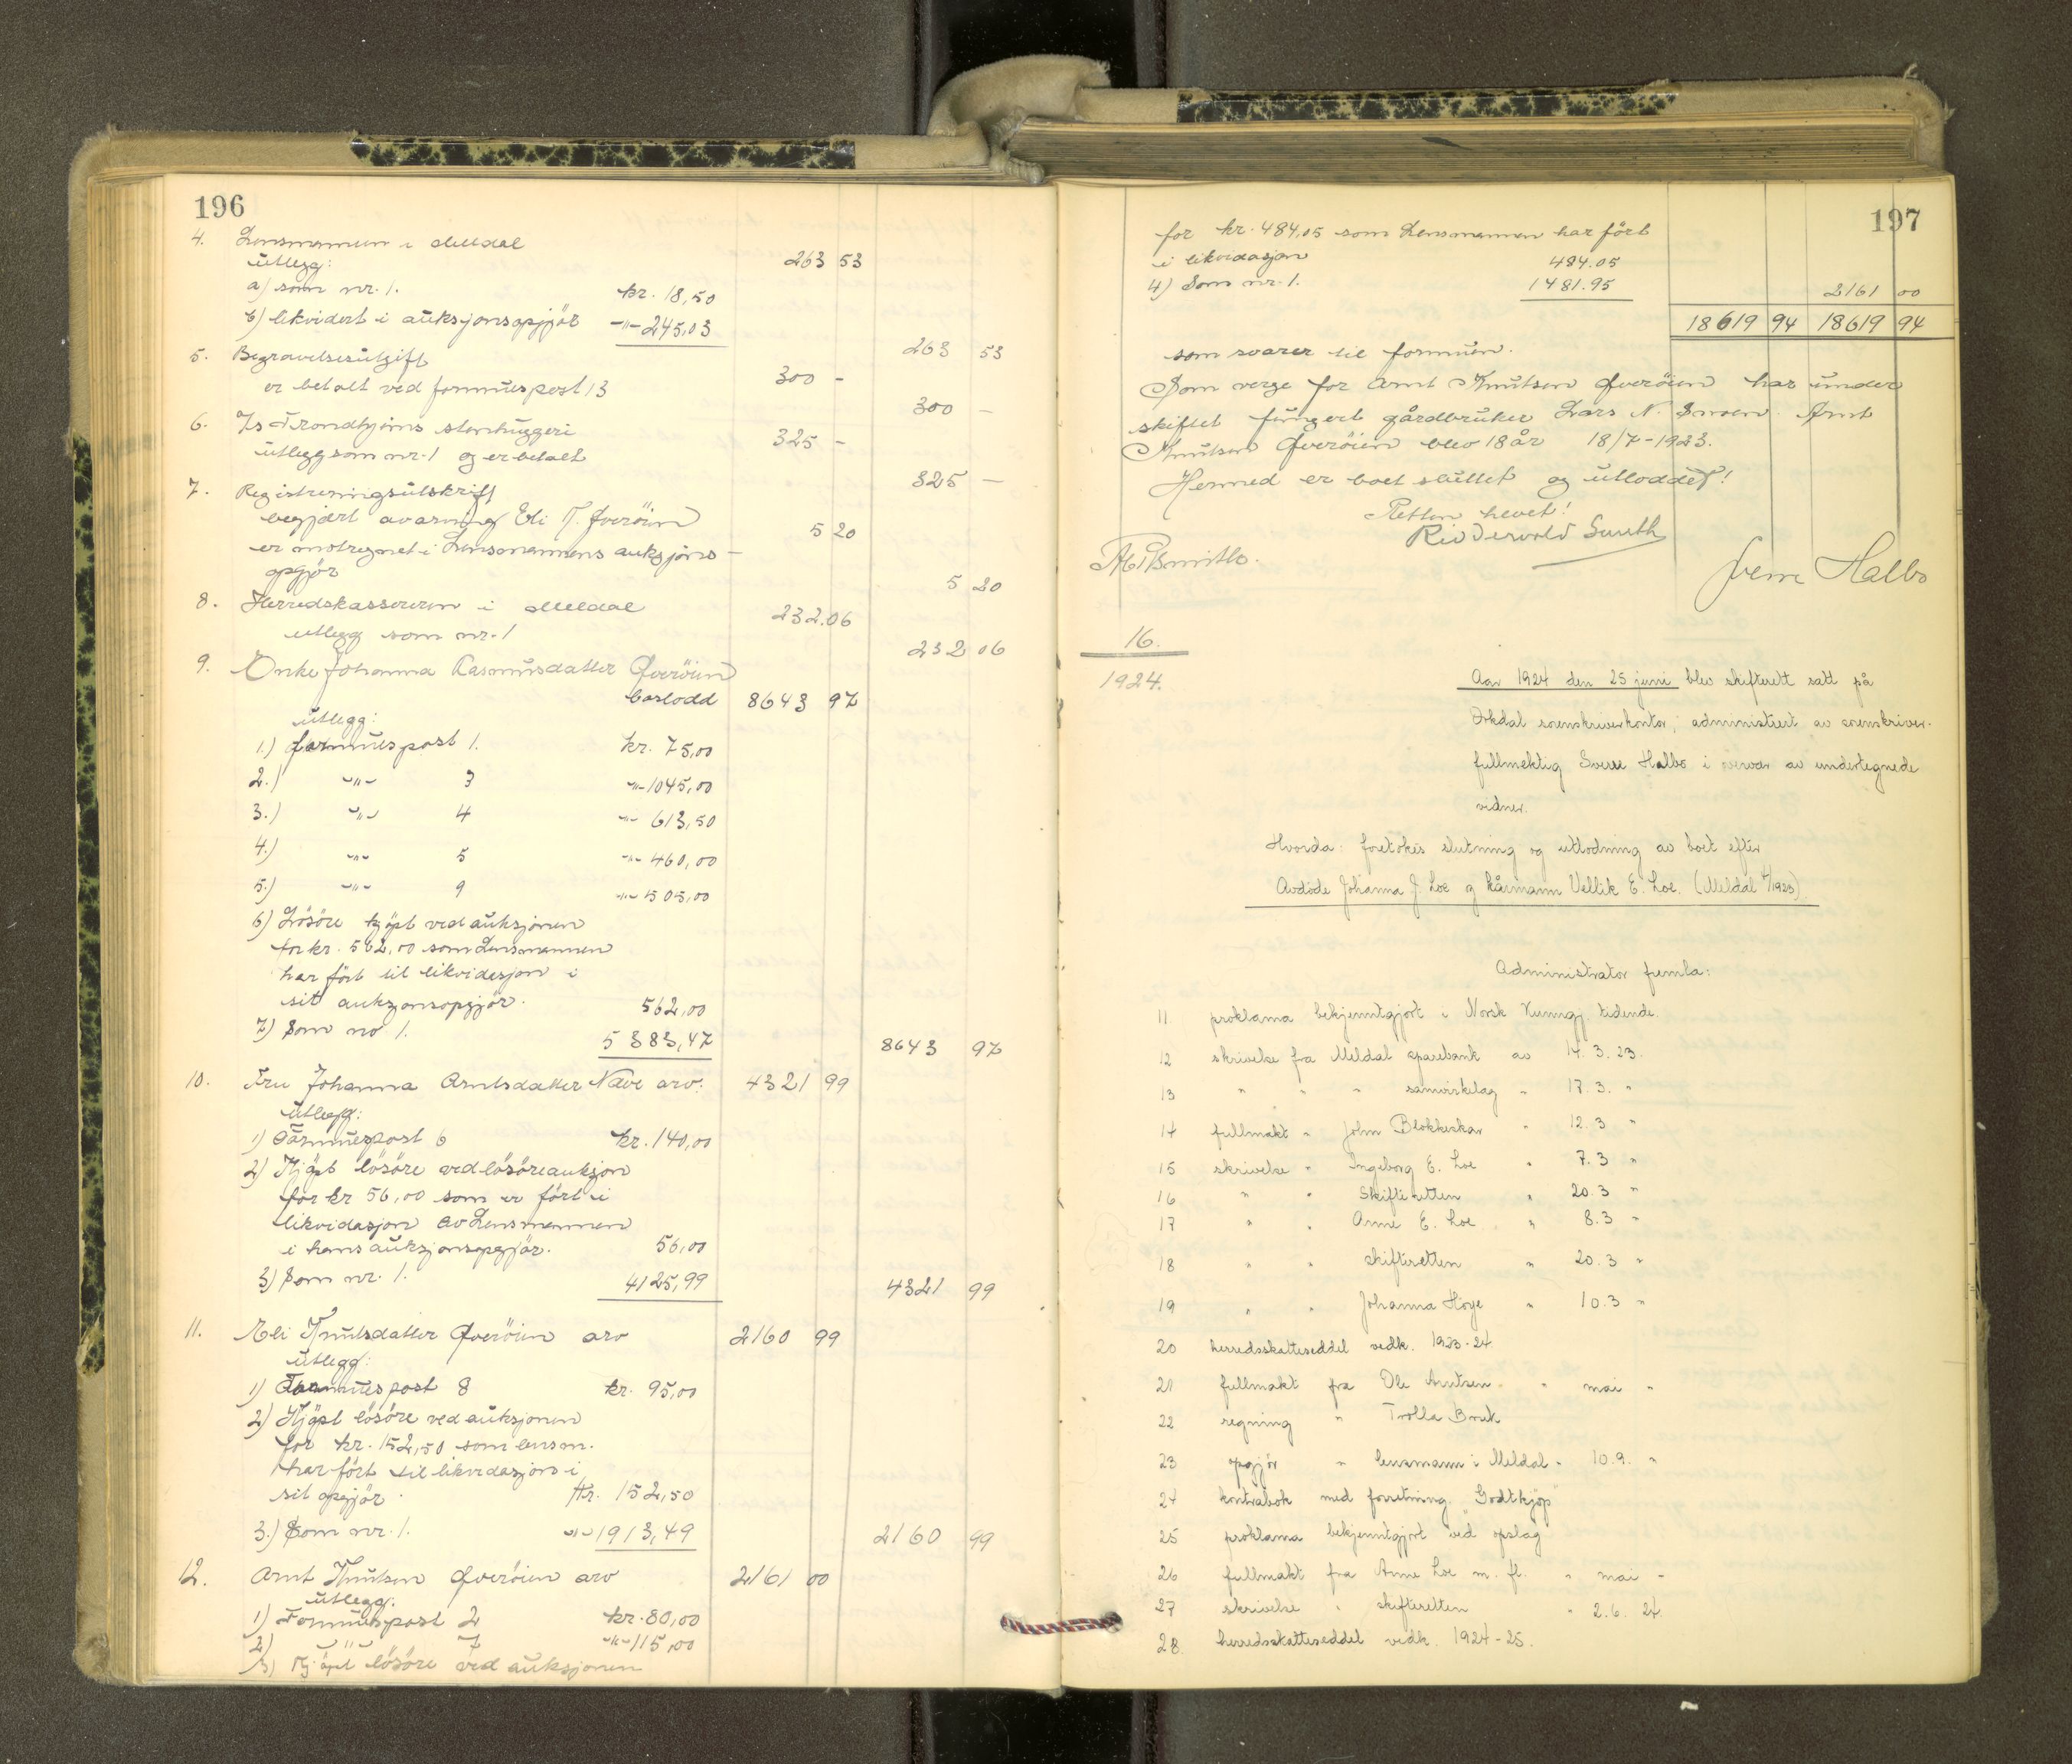 196
4. Lensmannen i Meldal 263 53
utlegg:
a) som nr. 1. kr. 18,50
b) likvidert i auksjonsopgjör -"- 245,03
263 53
5. Begravelsesutgift
er betalt ved formuespost 13 300 -
300 -
6. Trondhjems stenhuggeri 325 -
utlegg som nr. 1 og er betalt
325 -
7. Registreringsutskrift
begjært av arving Eli K. Qveröien 5 20
er motregnet i Lensmannens auksjons-
opgjör
5 20
8. Herredskassereren i Meldal 232.06
utlegg som nr. 1
232 06
9. Enke Johanna Rasmusdatter Qveröien
boslodd 8643 97
utlegg:
1.) formuespost 1. kr. 75,00
2.) -"- 3 -"- 1045,00
3.) -"- 4 -"- 613,50
4.) -"- 5 -"- 460,00
5.) -"- 9 -"- 505,00
6) Lösöre kjöpt ved auksjonen
for kr. 562,00 som Lensmannen
har fört til likvidasjon i
sit auksjonsopgjör. 562,00
7) Som no 1. 5383,47
8643 97
10. Fru Johanna Arntsdatter Nave arv: 4321 99
utlegg:
1) Formuespost 6 kr. 140,00
2) Kjöpt lösöre ved lösöreauksjon
for kr 56,00 som er fört i
likvidasjon av Lensmannen
i hans auksjonsopgjör. 56,00
3) Som nr. 1. 4125,99
4321 99
11. Eli Knutsdatter Qveröien arv 2160 99
utlegg:
1) Formuespost 8 kr. 95,00
2) Kjöpt lösöre ved auksjonen
for kr. 152,50 som lensm.
har fört til likvidasjon i
sit opgjör. Kr. 152,50
3.) Som nr. 1. -"- 1913,49
2160 99
12. Arnt Knutsen Qveröien arv 2161 00
utlegg:
1) Formuespost 2 kr. 80,00
2) -"- 7 -"- 115,00
3) Kjöpt lösöre ved auksjonen
197
for kr. 484,05 som Lensmannen har fört
i likvidasjon 484.05
4) Som nr. 1. 1481.95
2161 00
18619 94 18619 94
som svarer til formuen.
Som verge for Arnt Knutsen Qveröien har under
skiftet fungert gårdbruker Lars N. Snoen. Arnt
Knutsen Qveröien blev 18 år 18/7-1923.
Hermed er boet sluttet og utloddet!
Retten hevet!
Ridderwold Smith
Sverre Halbo
16.
1924.
Aar 1924 den 25 juni blev skifterett satt på
Orkdal sorenskriverkontor, administrert av sorenskriver-
fullmektig Sverre Halbo i nærvær av undertegnede
vidner.
Hvorda: foretokes slutning og utlodning av boet efter
Avdöde Johanna J. Loe og kårmann Vellik E. Loe. (Meldal 4/1923)
Administrator fremla:
11. proklama bekjenntgjort i Norsk Kunngj. tidende.
12 skrivelse fra Meldal sparebank av 14. 3. 23.
13 " " " samvirkelag " 17. 3. "
14 fullmakt " John Blokkeskar " 12. 3 "
15 skrivelse " Ingeborg E. Loe " 7. 3 "
16 " " Skifteretten " 20. 3 "
17 " " Anne E. Loe " 8. 3 "
18 " " skifteretten " 20. 3 "
19 " " Johanna Höge " 10. 3 "
20 herredsskatteseddel vedk. 1923-24
21 fullmakt fra Ole Arntsen " mai "
22 regning " Trolla Bruk
23 opgjör " lensmann i Meldal " 10. 9. "
24 kontrabok med forretning "Godtkjöp"
25 proklama bekjenntgjort ved opslag
26 fullmakt fra Anne Loe m. fl. " mai "
27 skrivelse " skifteretten " 2. 6. 24.
28. herredsskatteseddel vedk. 1924-25.